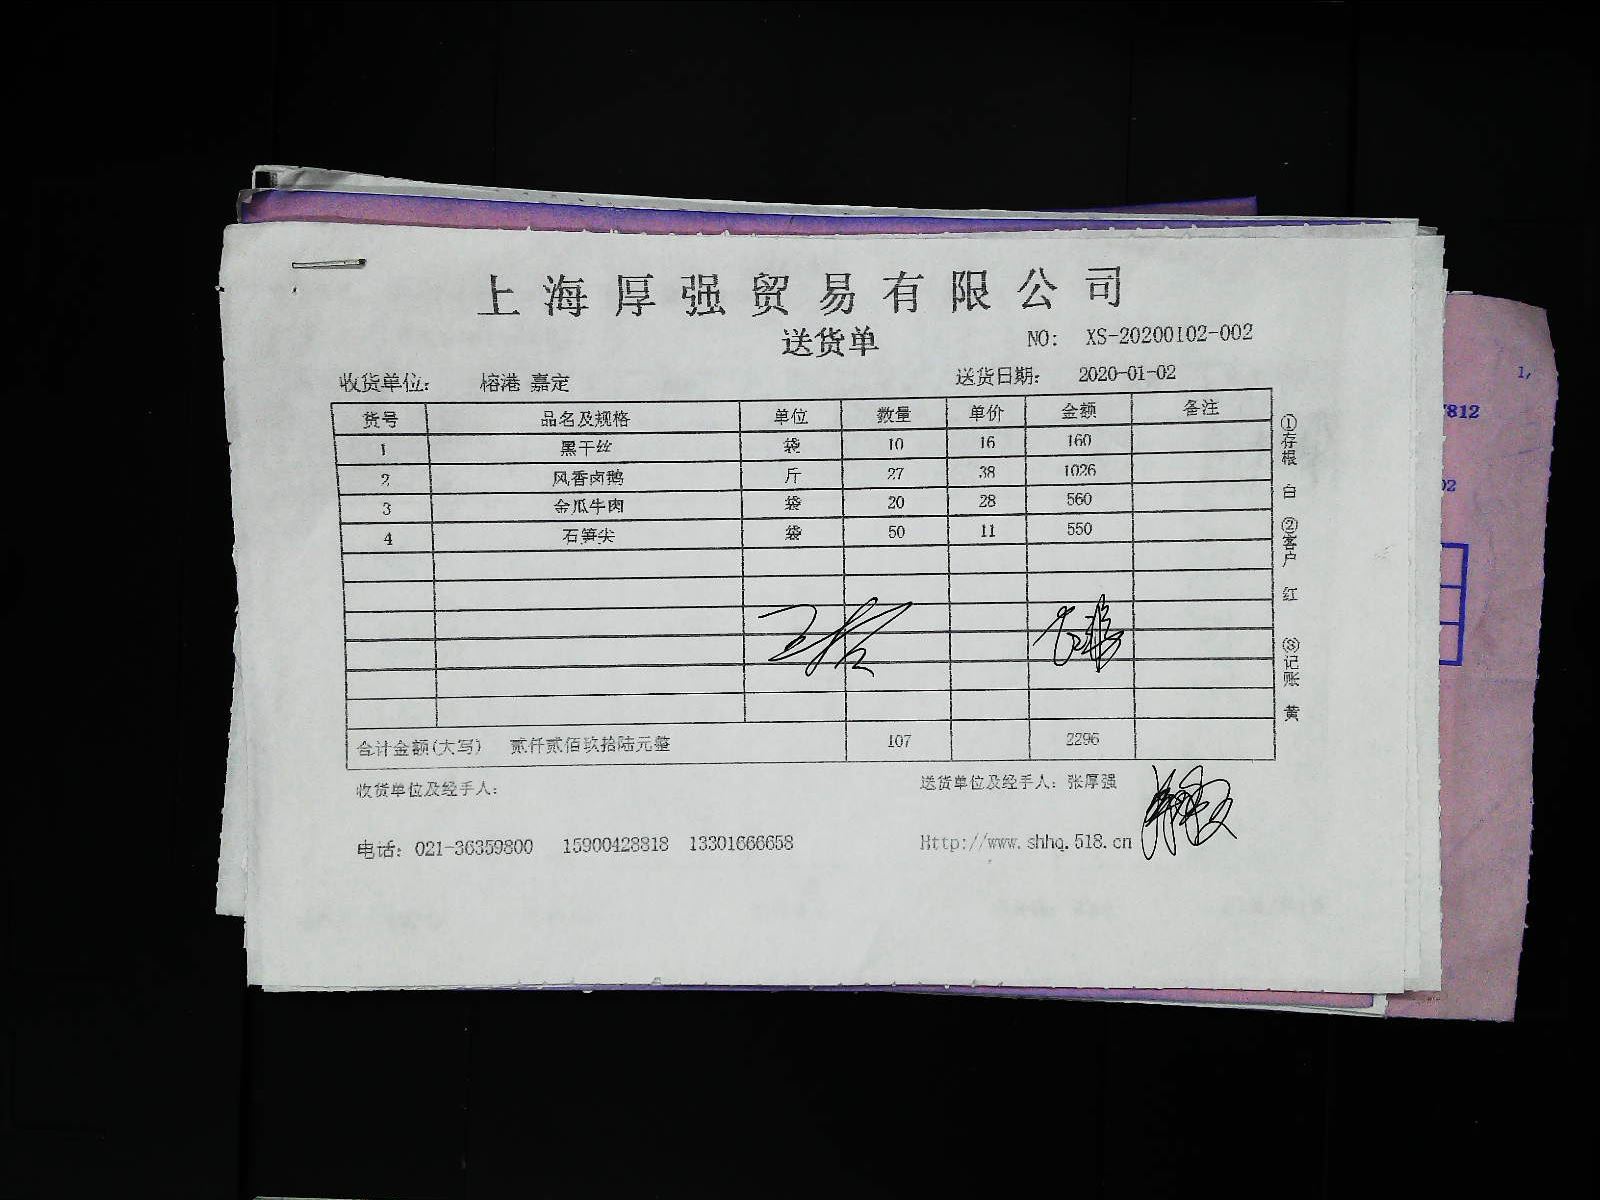 上海厚强贸易有限公司
送货单 NO: XS-20200102-002
收货单位: 榕港 嘉定 送货日期: 2020-01-02
货号 品名及规格 单位 数量 单价 金额 备注
1 黑干丝 袋 10 16 160
2 风香卤鹅 斤 27 38 1026
3 金瓜牛肉 袋 20 28 560
4 石笋尖 袋 50 11 550
合计金额(大写) 贰仟贰佰玖拾陆元整 107 2296
收货单位及经手人: 送货单位及经手人: 张厚强
电话: 021-36359800 15900428818 13301666658 Http://www.shhq.518.cn
①存根 白 ②客户 红 ③记账 黄
1,
7812
02